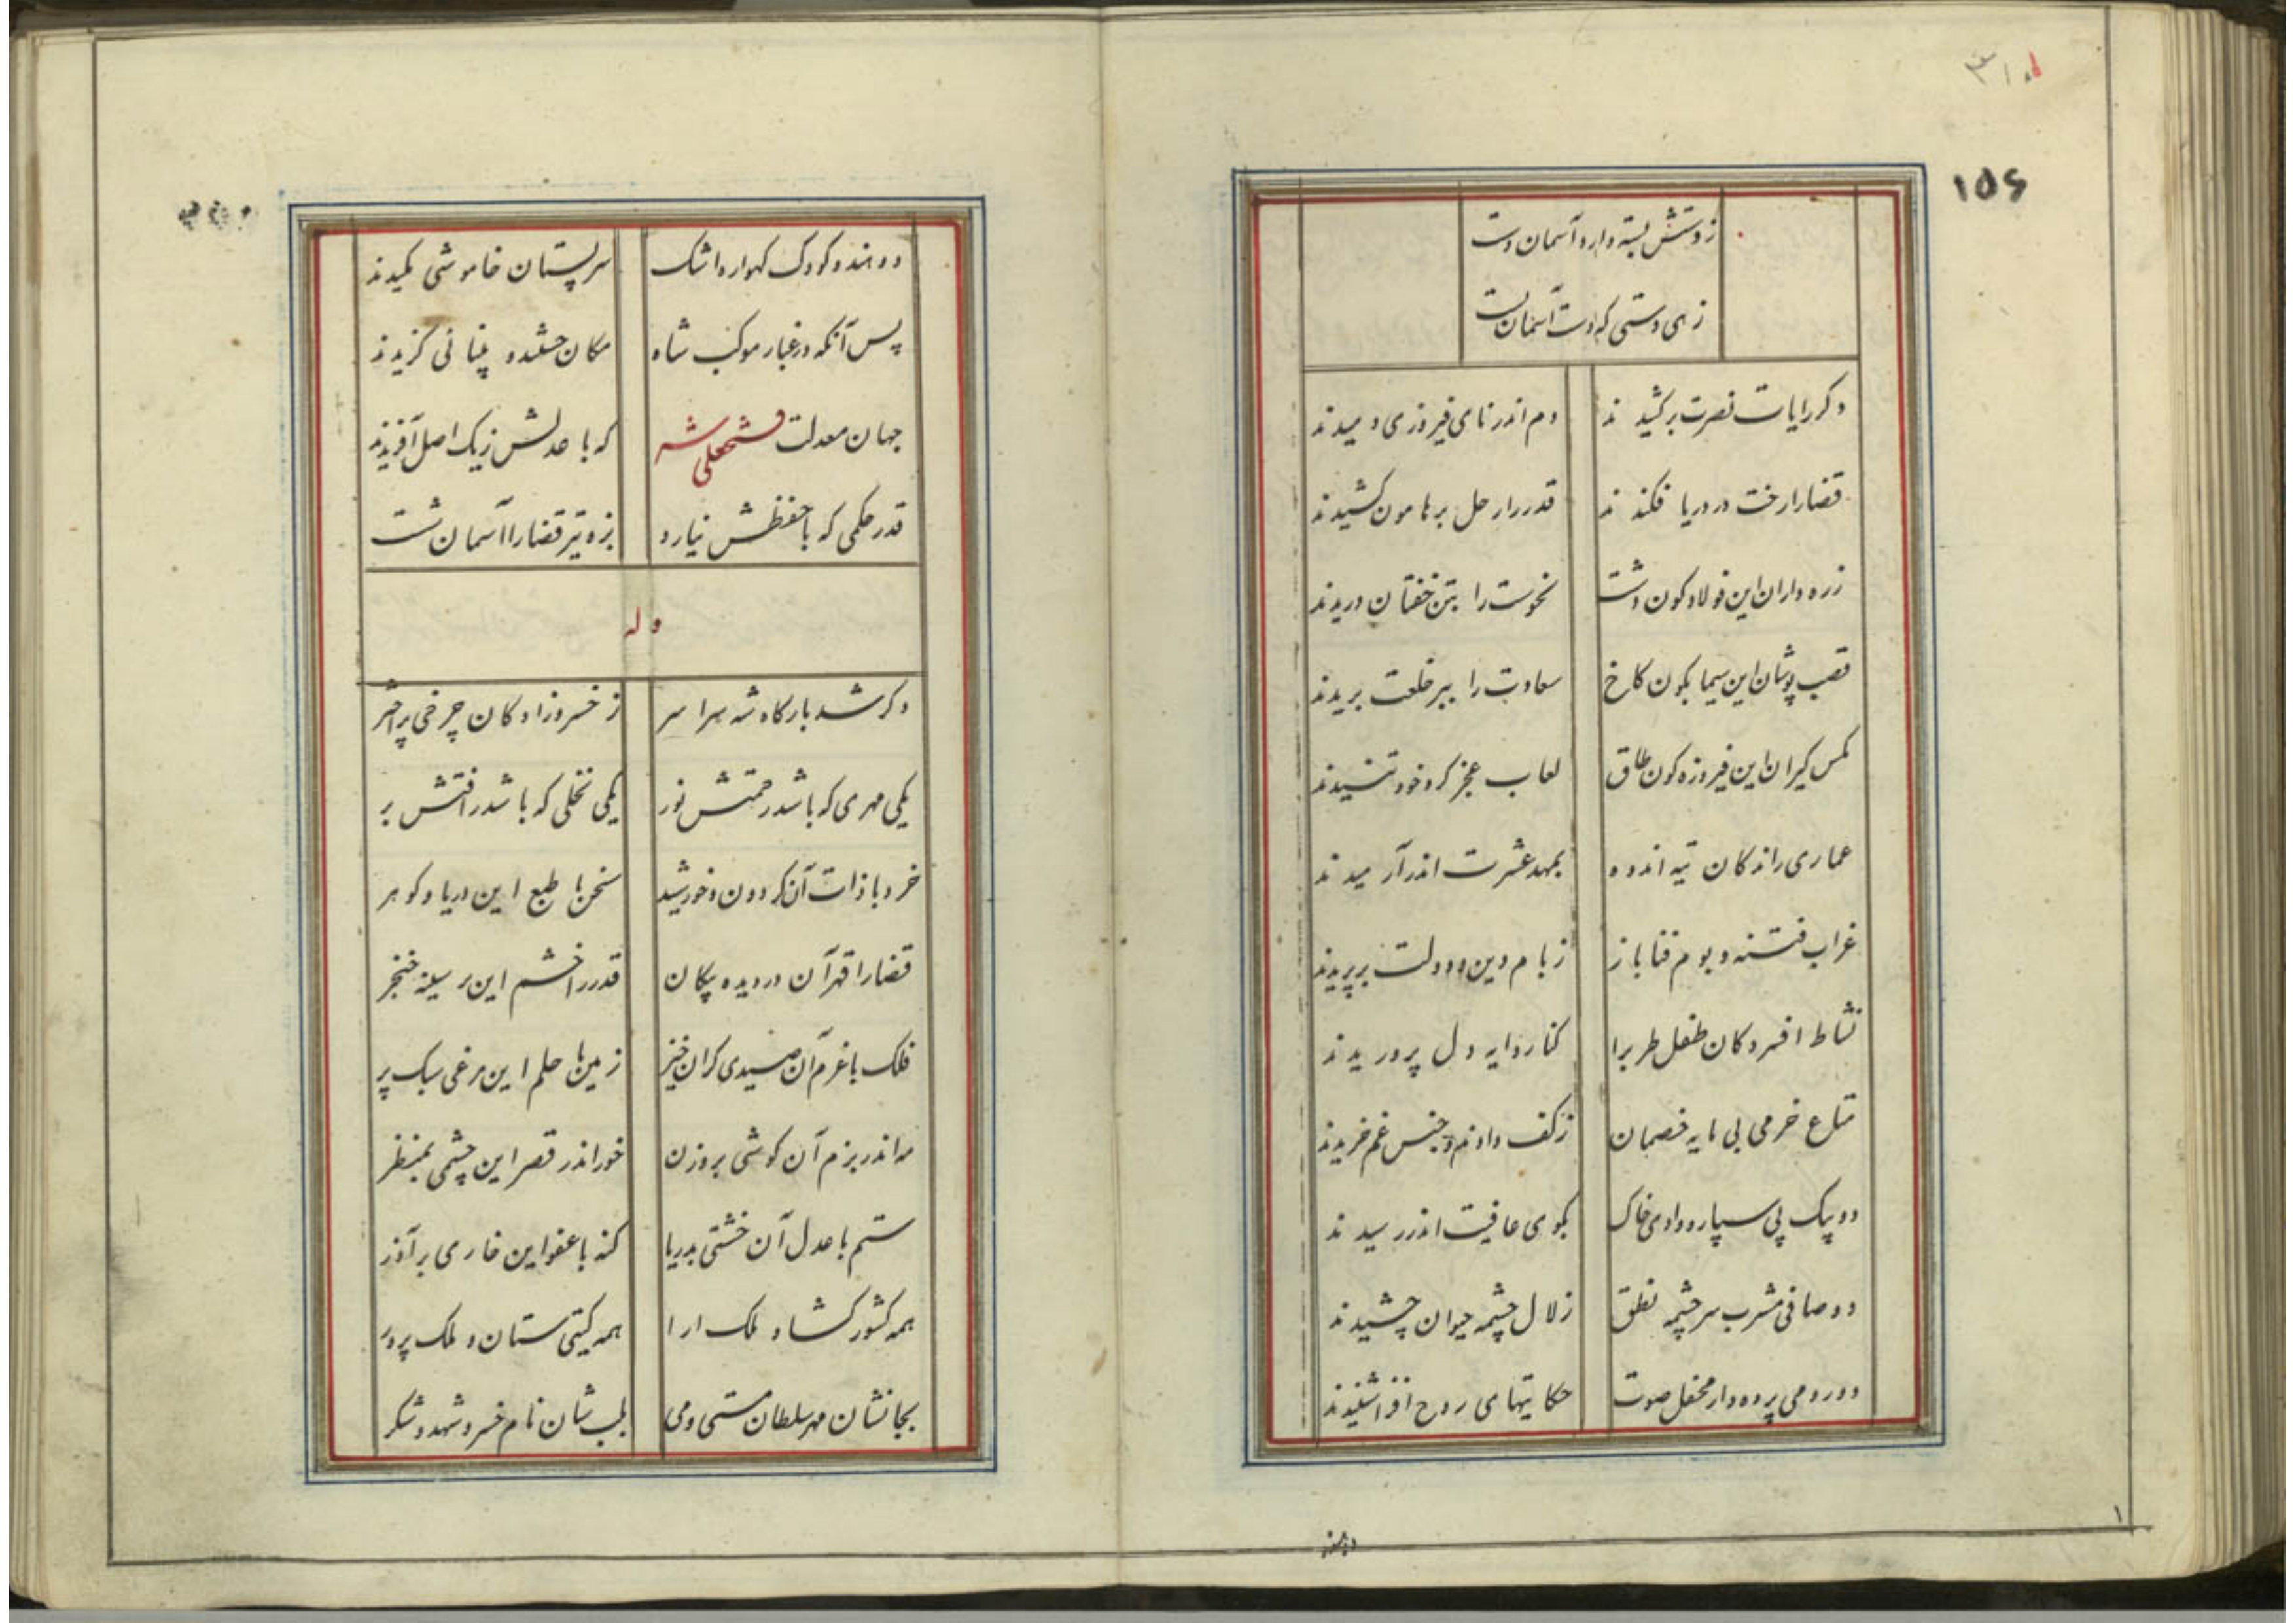 ۳۱۰
۱۵۶
ز دستش بسته دارد آسمان دست
زهی دستی که دست آسمان بست
دکر رایات نصرت برکشیدند دم اندر نای فیروزی دمیدند
قضا را رخت در دریا فکندند قدر را رحل بر هامون کشیدند
زره داران این فولادکون دشت نحوست را بتن خفتان دریدند
قصب پوشان این سیمابکون کاخ سعادت را ببر خلعت بریدند
مکس کیران این فیروزه کون طاق لعاب عجز کرد خود تنیدند
عماری راندکان تیه اندوه بمهد عشرت اندر آرمیدند
غراب فتنه و بوم فنا باز ز بام دین و دولت برپریدند
نشاط افسردکان طفل طرب را کنار دایه دل پروریدند
متاع خرمی بی مایه خصمان ز کف دادند و جنس غم خریدند
دو پیک پی سپار وادی خاک بکوی عافیت اندر رسیدند
دو صافی مشرب سرچشمه نطق زلال چشمه حیوان چشیدند
دو رومی پرده دار محفل صوت حکایتهای روح افزا شنیدند
دو هندو
دو هندو کودک کهواره اشک سر پستان خاموشی مکیدند
پس آنکه در غبار موکب شاه مکان جستند و بینائی کزیدند
جهان معدلت فتحعلی شه که با عدلش ز یک اصل آفریدند
قدر حکمی که با حفظش نیارد بزه تیر قضا را آسمان شست
وله
دکر شد بارکاه شه سراسر ز خسروزادکان چرخی پر اختر
یکی مهری که باشد رحمتش نور یکی نخلی که باشد رافتش بر
خرد با ذات آن کردون و خورشید سخن با طبع این دریا و کوهر
قضا را قهر آن در دیده پیکان قدر را خشم این بر سینه خنجر
فلک با عزم آن صیدی کران خیز زمین با حلم این مرغی سبک پر
مه اندر بزم آن کوشی بروزن خور اندر قصر این چشمی بمنظر
ستم با عدل آن خشتی بدریا کنه با عفو این خاری بر آذر
همه کشور کشا و ملک ارا همه کیتی ستان و ملک پرور
بجانشان مهر سلطان مستی و می بلب شان نام خسرو شهد و شکر